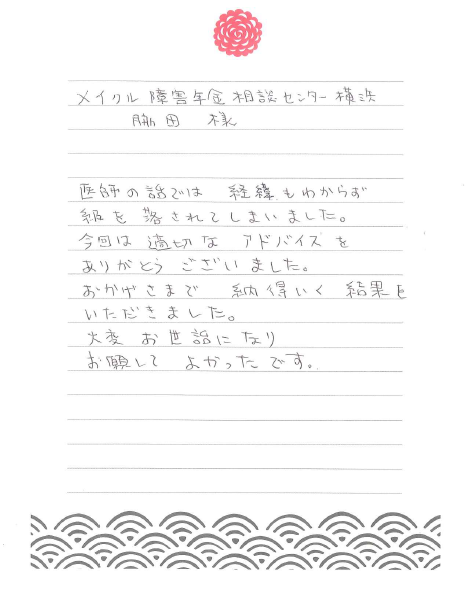 メイクル 障害年金 相談センター 横浜
脇田 様
医師の話では 経緯もわからず
級を落されてしまいました。
今回は 適切な アドバイズを
ありがとう ございました。
おかげさまで 納得いく 結果を
いただきました。
大変 お世話に なり
お願して よかった です。